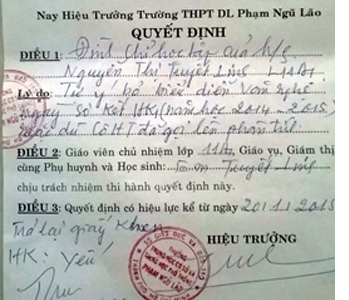 Nay Hiệu Trưởng Trường THPT DL Phạm Ngũ Lão
QUYẾT ĐỊNH
ĐIỀU 1: Đình chỉ học tập của h/s
Nguyễn Thị Tuyết Linh 11A1
Lý do: Tự ý bỏ biểu diễn văn nghệ
ngày sơ kết HK1 (năm học 2014 - 2015)
mặc dù Cô HT đã gọi lên phân tích
ĐIỀU 2: Giáo viên chủ nhiệm lớp 11A1, Giáo vụ, Giám thị
cùng Phụ huynh và Học sinh: Em Tuyết Linh
chịu trách nhiệm thi hành quyết định này.
ĐIỀU 3: Quyết định có hiệu lực kể từ ngày 20/1/2015
Trả lại giấy khen
HIỆU TRƯỞNG
HK: Yếu
PHẠM NGŨ LÃO